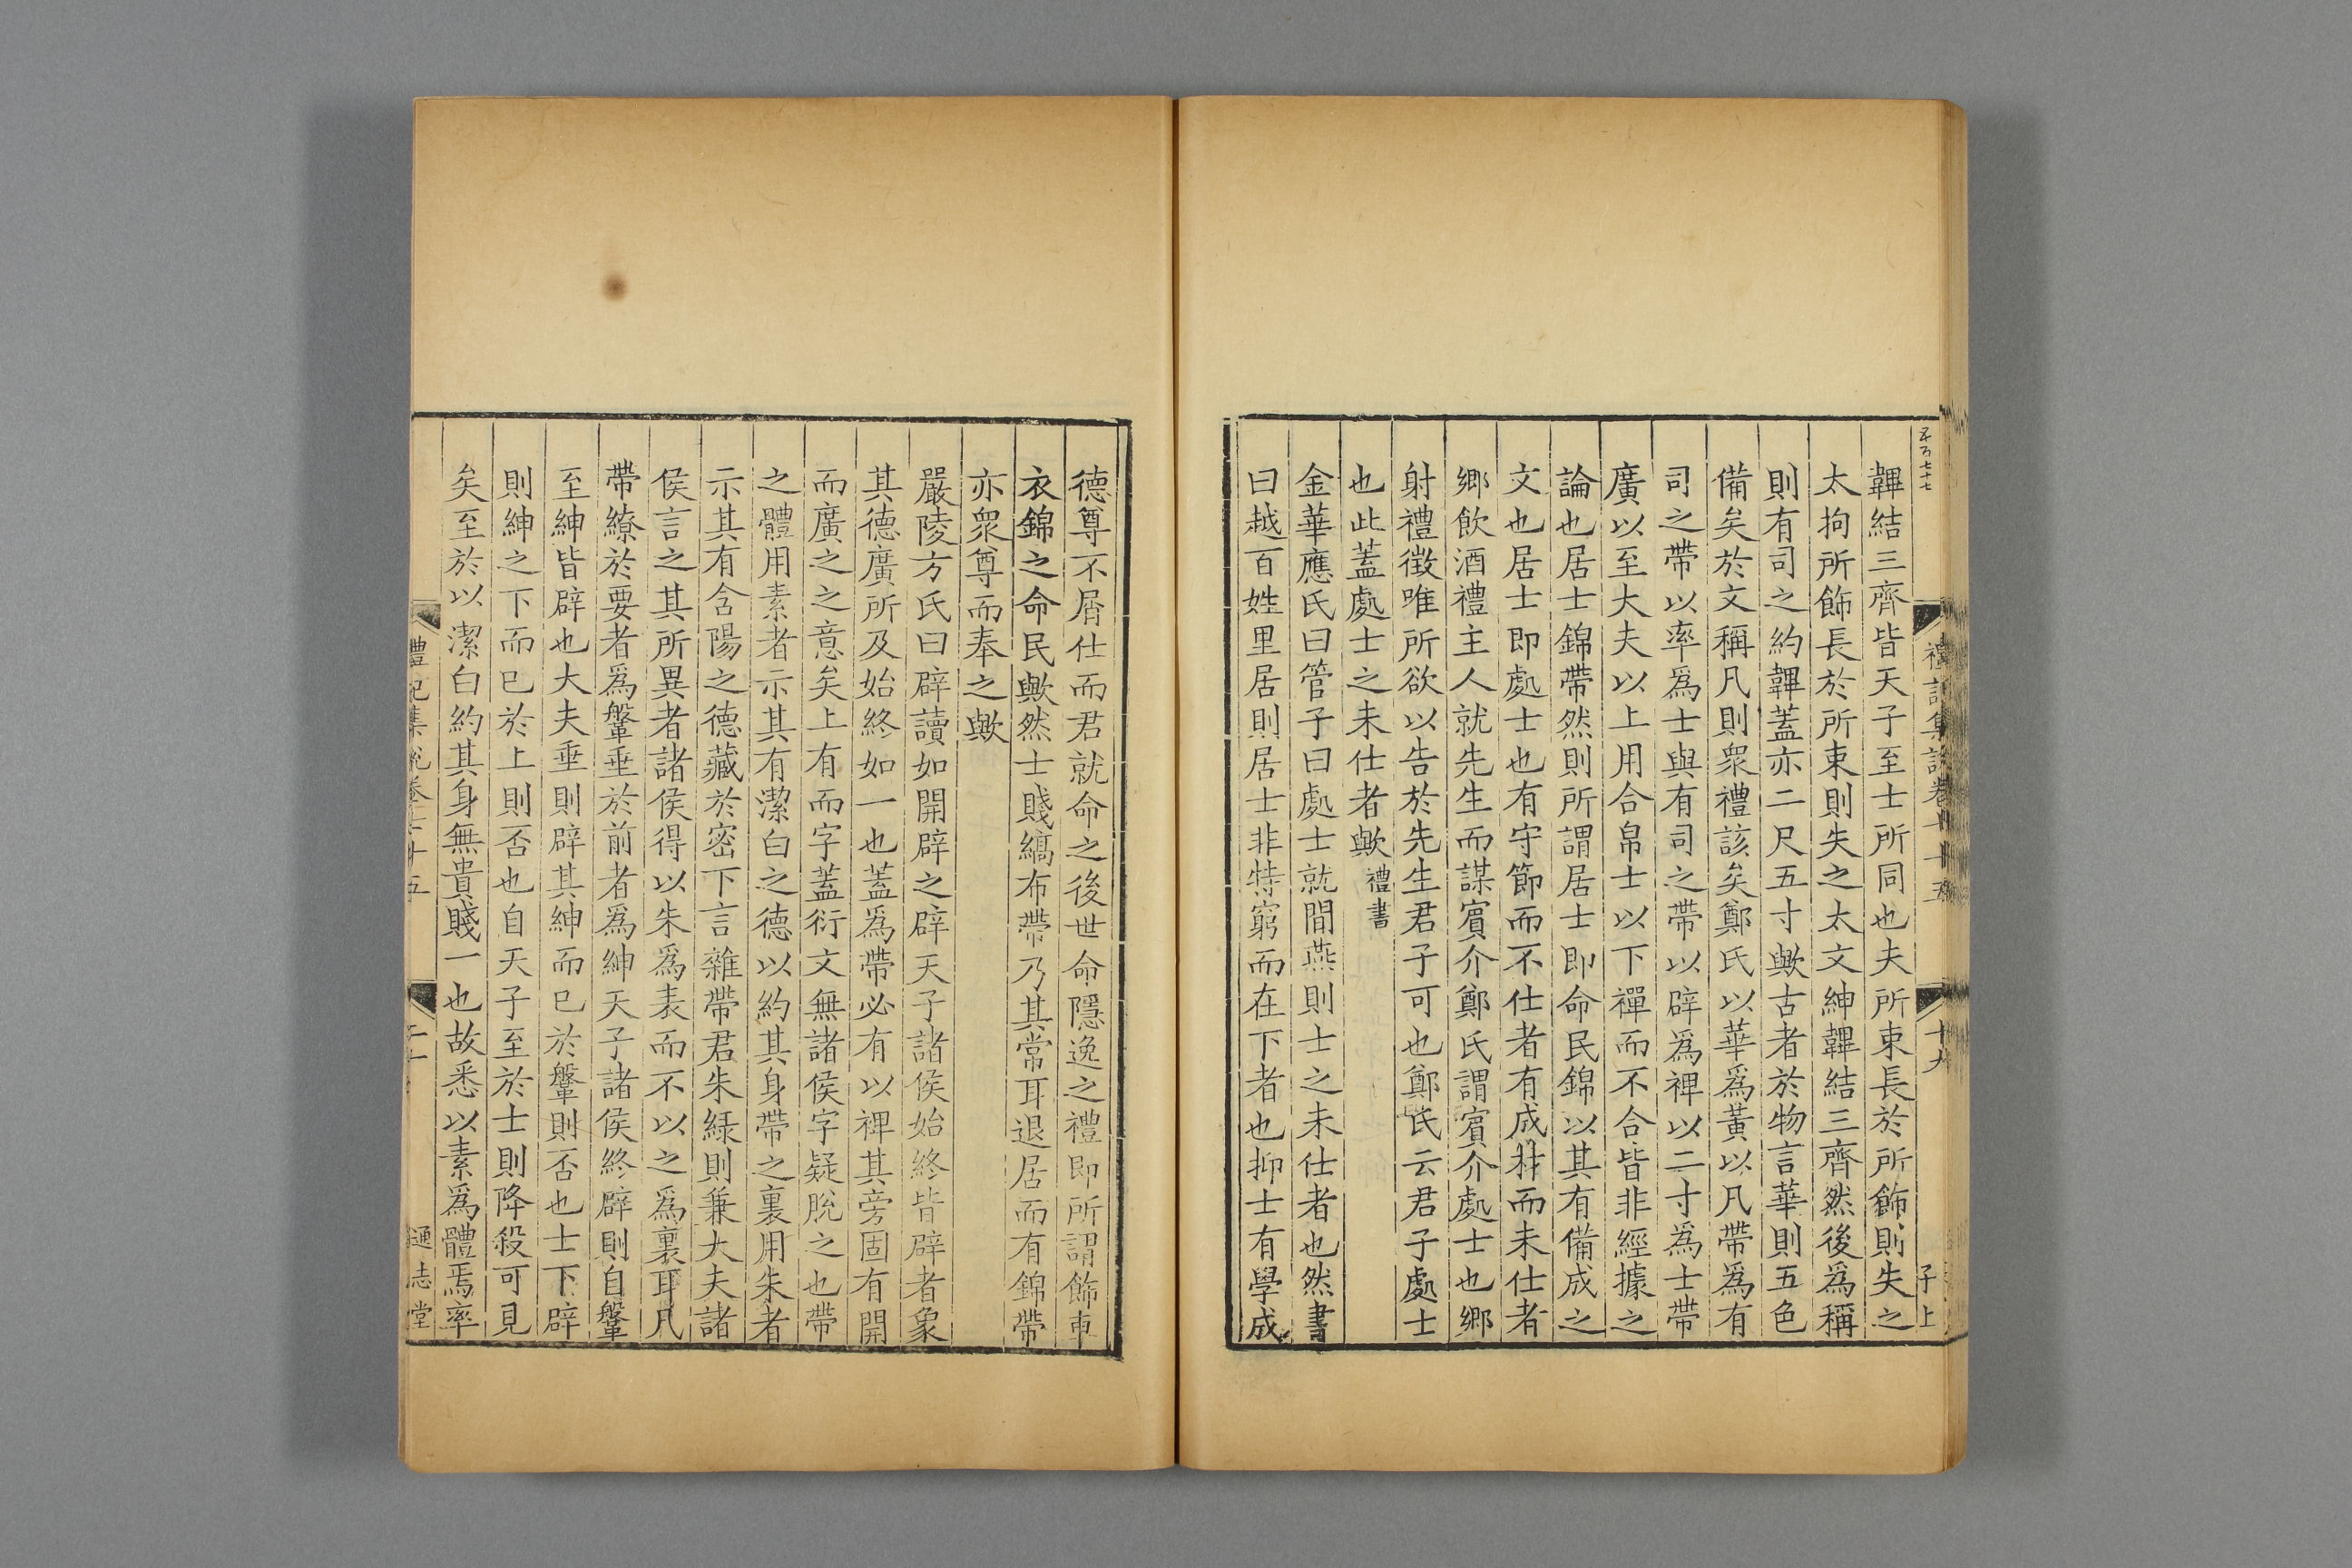 韠結三齊皆天子至士所同也夫所束長於所飾則失之
太拘所飾長於所束則失之太文紳韠結三齊然後爲稱
則有司之約韠蓋亦二尺五寸歟古者於物言華則五色
備矣於文稱凡則衆禮該矣鄭氏以華爲黃以凡帶爲有
司之帶以率爲士與有司之帶以辟爲裨以二寸爲士帶
廣以至大夫以上用合帛士以下禪而不合皆非經據之
論也居士錦帶然則所謂居士即命民錦以其有備成之
文也居士即處士也有守節而不仕者有成材而未仕者
鄉飲酒禮主人就先生而謀賓介鄭氏謂賓介處士也鄉
射禮徵唯所欲以告於先生君子可也鄭氏云君子處士
也此蓋處士之未仕者歟禮書
金華應氏曰管子曰處士就閒燕則士之未仕者也然書
曰越百姓里居則居士非特窮而在下者也抑士有學成
禮記集說卷七十五
十九
子上
德尊不屑仕而君就命之後世命隱逸之禮即所謂飾車
衣錦之命民歟然士賤縞布帶乃其常耳退居而有錦帶
亦衆尊而奉之歟
嚴陵方氏曰辟讀如開辟之辟天子諸侯始終皆辟者象
其德廣所及始終如一也蓋爲帶必有以裨其旁固有開
而廣之之意矣上有而字蓋衍文無諸侯字疑脫之也帶
之體用素者示其有潔白之德以約其身帶之裏用朱者
示其有含陽之德藏於密下言雜帶君朱綠則兼大夫諸
侯言之其所異者諸侯得以朱爲表而不以之爲裏耳凡
帶繚於要者爲鞶垂於前者爲紳天子諸侯終辟則自鞶
至紳皆辟也大夫垂則辟其紳而已於鞶則否也士下辟
則紳之下而已於上則否也自天子至於士則降殺可見
矣至於以潔白約其身無貴賤一也故悉以素爲體焉率
禮記集說卷七十五
二十
通志堂